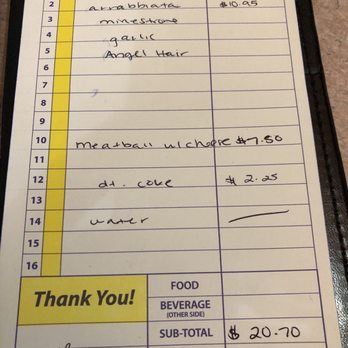 2 arrabbiata $10.95
3 minestrone
4 garlic
5 Angel Hair
6
7
8
9
10 meatball w/ cheese $7.50
11
12 dt. coke $2.25
13
14 water
15
16
Thank You!
FOOD
BEVERAGE
(OTHER SIDE)
SUB-TOTAL $ 20.70